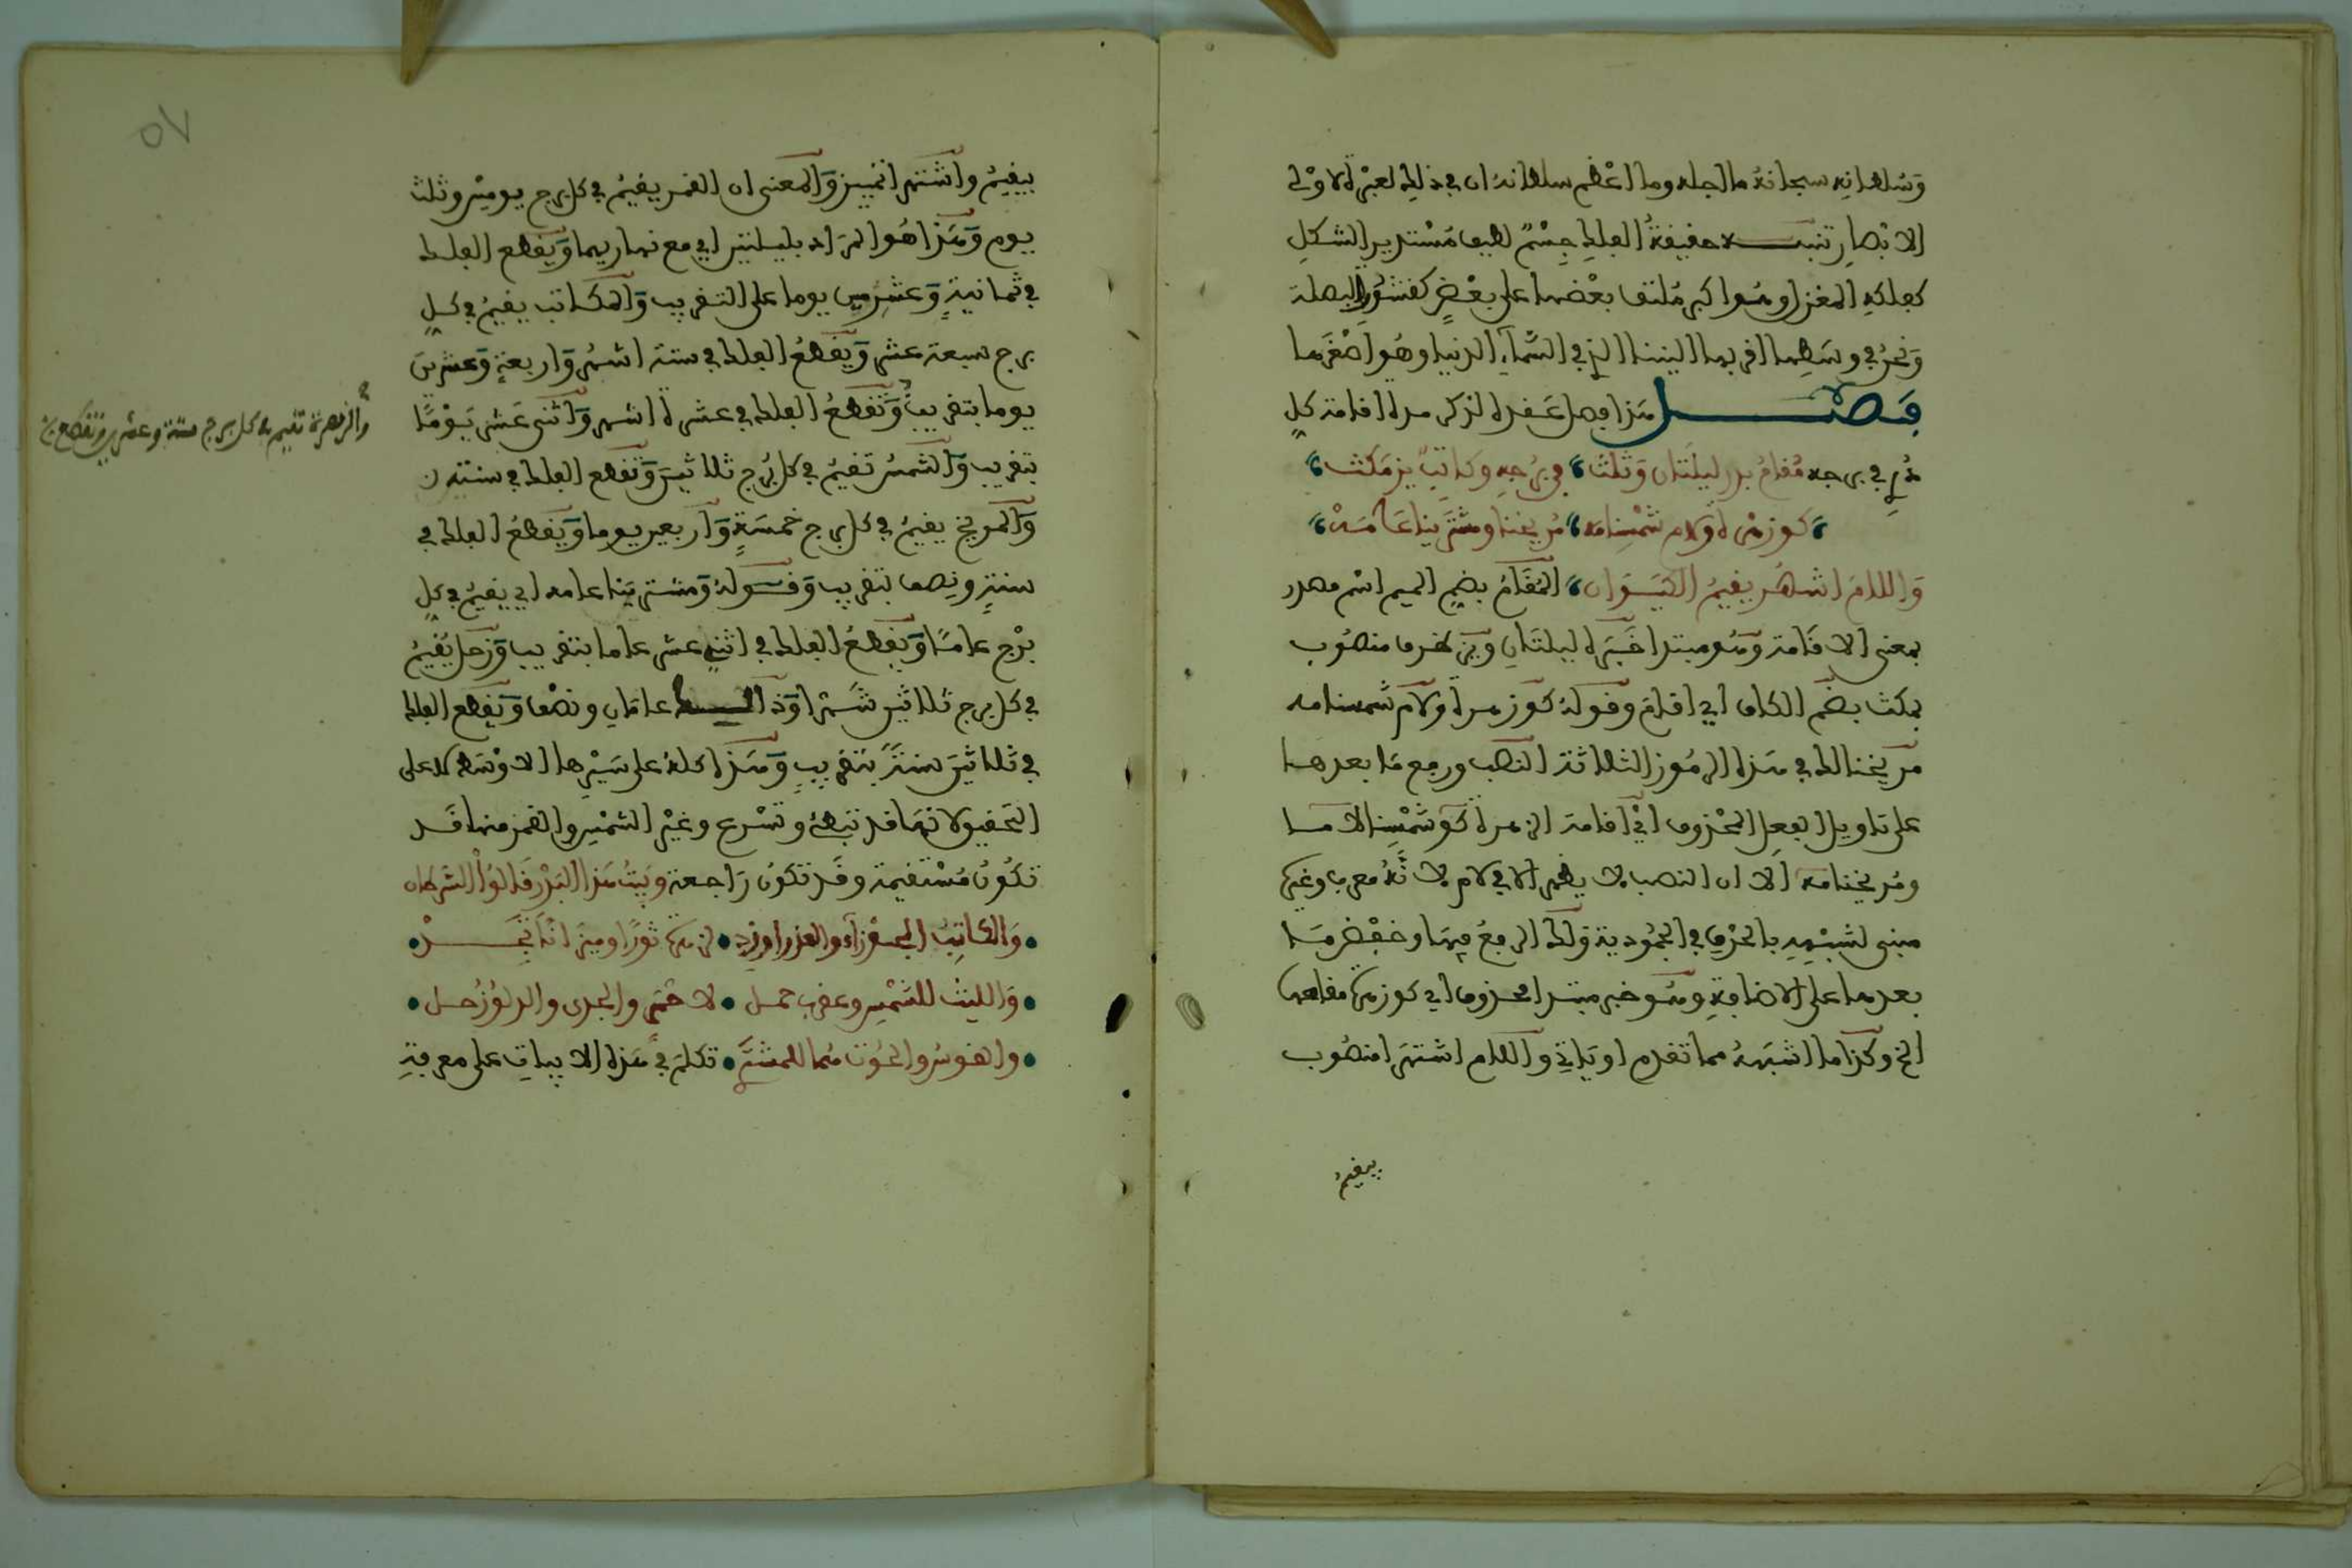 وسلطانه سبحانه ما اجله وما اعظم سلطانه ان في ذلك لعبرة لاولي
الابصار تنبيه حقيقة الفلك جسم لطيف مستدير الشكل
كفلكة المغزل وهو اكر ملتف بعضها على بعض كقشور البصلة
ونحن في وسطها اقربها الينا الذي في السماء الدنيا وهو اصغرها
فصل هذا فصل عقده لذكر مدة اقامة كل
دري في برجه مقام بدر ليلتان وثلث في برجه وكاتب يز مكث
كوزهرة ولام شمسنا مه مريخنا ومشترينا عامه
واللام اشهر يقيم الكيوان المقام بضم الميم اسم مصدر
بمعنى الاقامة وهو مبتدا خبره ليلتان ويز ظرف منصوب
بمكث بضم الكاف اي اقام وقوله كوزهرة ولام شمسنا مه
مريخنا لك في هذه الرموز الثلاثة النصب ورفع ما بعدها
على تاويل الفعل المحذوف اي اقامة الزهرة كو شمسنا لاما
ومريخنا مه الا ان النصب لا يظهر الا في لام لانه معرب وغيره
مبني لشبهه بالحرف في الجمودية ولك الرفع فيها وخفض ما
بعدها على الاضافة وهو خبر مبتدا محذوف اي كوزهرة مقامها
الخ وكذا ما اشبهه مما تقدم او ياتي واللام اشتهرا منصوب
يقيم
بيقيم واشتهر اتمييز والمعنى ان القمر يقيم في كل برج يومين وثلث
يوم وهذا هو المراد بليلتين اي مع نهاريهما ويقطع الفلك
في ثمانية وعشرين يوما على التقريب والكاتب يقيم في كل
برج سبعة عشر ويقطع الفلك في ستة اشهر واربعة وعشرين
يوما بتقريب وتقطع الفلك في عشرة اشهر واثني عشر يوما
بتقريب والشمس تقيم في كل برج ثلاثين وتقطع الفلك في سنة
والمريخ يقيم في كل برج خمسة واربعين يوما ويقطع الفلك في
سنة ونصف بتقريب وقوله ومشترينا عامه اي يقيم في كل
برج عاما ويقطع الفلك في اثني عشر عاما بتقريب وزحل يقيم
في كل برج ثلاثين شهرا وذلك عامان ونصف ويقطع الفلك
في ثلاثين سنة بتقريب وهذا كله على سيرها الاوسط لا على
التحقيق لانها قد تبطئ وتسرع وغير الشمس والقمر منها قد
تكون مستقيمة وقد تكون راجعة وبيت هذا البدر قالوا السرطان
والكاتب الجوزاء والعذرا وزد لزهرة ثورا وميزانا تجد
والليث للشمس وعقرب حمل لاحمر والجدي والدلو زحل
والقوس والحوت هما للمشتري تكلم في هذه الابيات على معرفة
والزهرة تقيم في كل برج ستة وعشرين وتقطع
٧٥